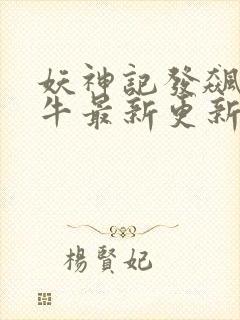 妖神記發飆
牛最新更新
楊賢妃